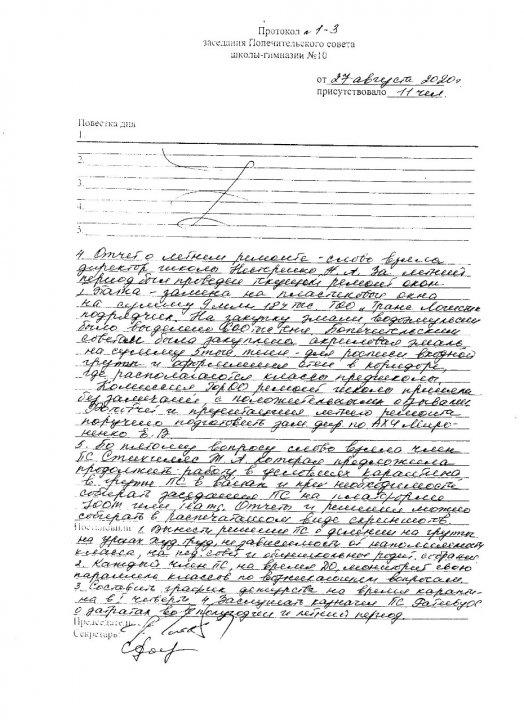 Протокол № 1-3
заседания Попечительского совета
школы-гимназии №10
от 27 августа 2020г
присутствовало 11 чел.
Повестка дня
1.
2.
3.
4.
5.
4. Отчет о летнем ремонте - слово взяла
директор школы Нестеренко Н. А. За летний
период был проведен текущий ремонт окон
1 этажа - замена на пластиковые окна
на сумму 9 млн. 184 тг. ТОО
подрядчик. На закупку эмали водоэмульсии
было выделено 600 тг. Попечительским
советом была закуплена акриловая эмаль
на сумму для росписи входной
группы и оформления стен в коридоре,
где располагаются классы предшколы.
Комиссия ГорОО ремонт школы приняла
без замечаний, с положительными отзывами
Фотоотчет и презентацию летнего ремонта
поручено подготовить зам. дир. по АХЧ Миро-
ненко Е. В.
5. По пятому вопросу слово взяла член
ПС Т. А. которая предложила
продолжить работу в условиях карантина
в группе ПС в ватсап и при необходимости
собирать заседание ПС на платформе
ZOOM или Отчеты и решения можно
собирать в распечатанном виде скриншотов.
Постановили 1. Вынести решение ПС о делении на группы
на уроках худ. труд, независимо от наполняемости
класса, на пед. совет и общешкольное родит. собрание
2. Каждый член ПС, на время ДО, мониторит свою
параллель классов по возникающим вопросам.
3. Составить график дежурства на время каранти-
на в I четверти. 4. Заслушать казначея ПС
о затратах во II полугодии и летний период.
Председатель
Секретарь